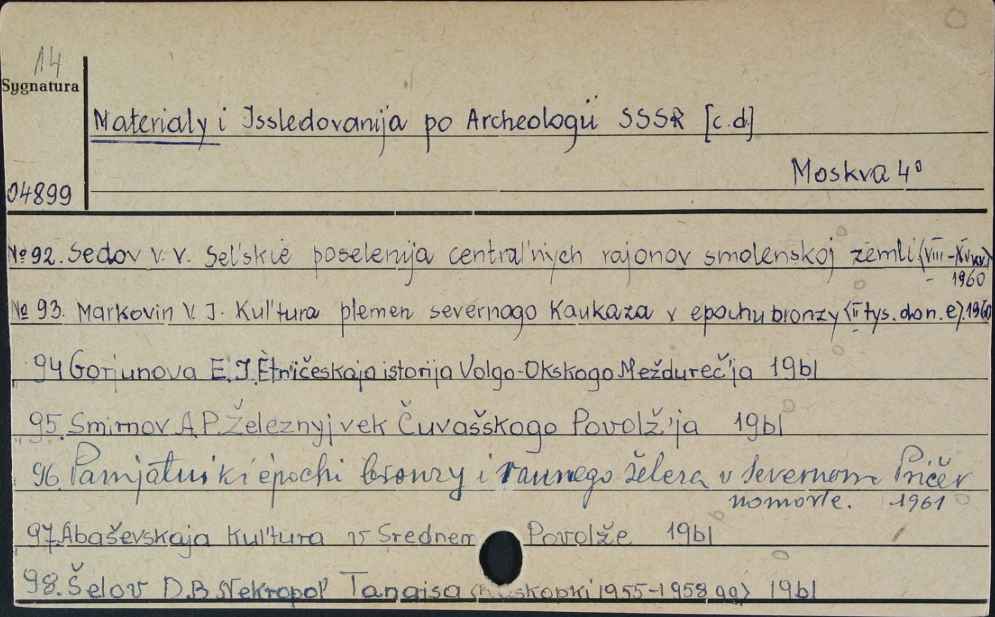 14
Sygnatura
Materialy i Issledovanija po Archeologii SSSR [c.d]
Moskva 4°
04899
№92. Sedov V. V. Sel'skie poselenija central'nych rajonov smolenskoj zemli (VIII-XV vv)
1960
№ 93. Markovin V. I. Kul'tura plemen severnogo Kaukaza v epochu bronzy (II tys. do n. e). 1960
94 Gorjunova E. I. Etničeskaja istorija Volgo-Okskogo Meždureč'ja 1961
95. Smirnov A. P. Železnyj vek Čuvašskogo Povolž'ja 1961
96. Pamjatniki epochi bronzy i rannego železa v Severnom Pričer
nomor'e. 1961
97. Abaševskaja kul'tura v Srednem Povolže 1961
98. Šelov D. B. Nekropol' Tanaisa (Raskopki 1955-1958 gg) 1961